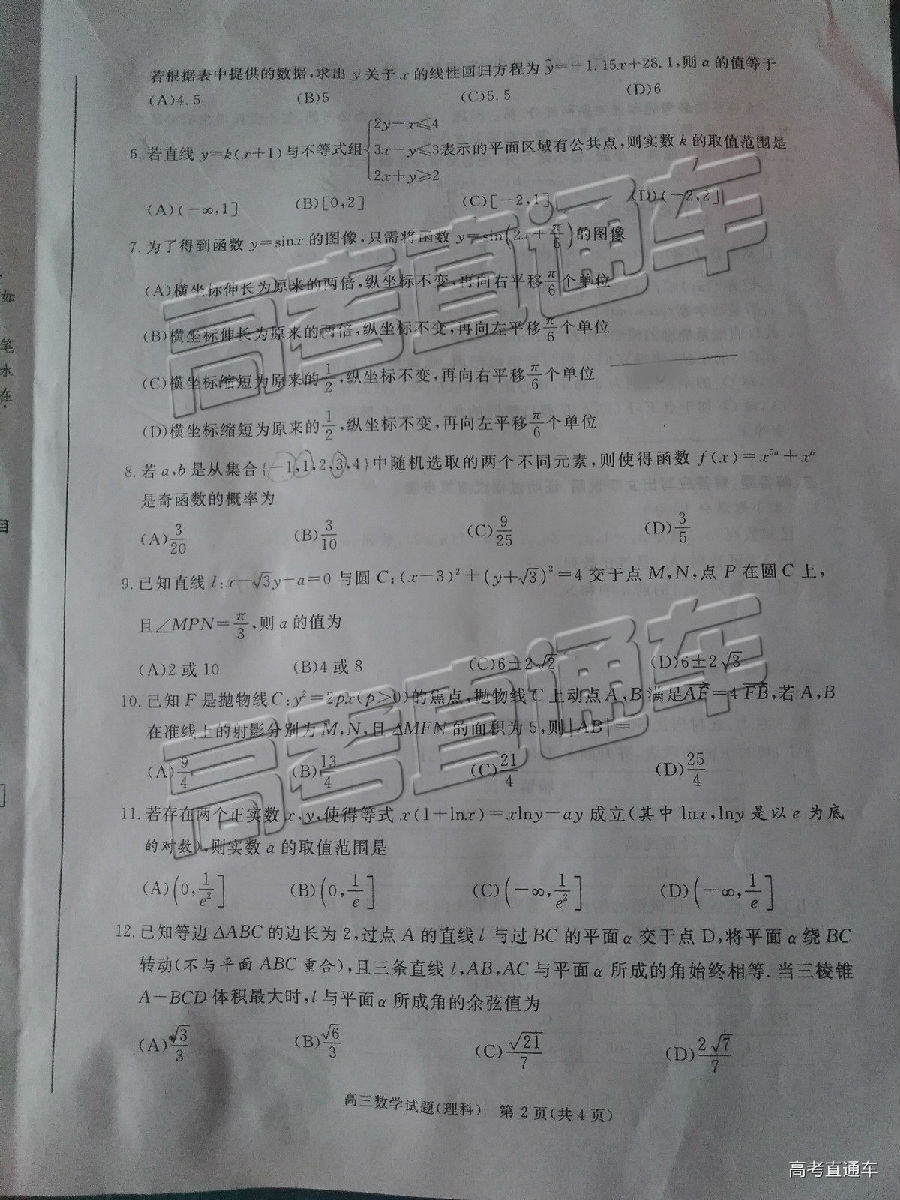 若根据表中提供的数据,求出 y 关于 x 的线性回归方程为 ŷ=-1.15x+28.1,则 a 的值等于
(A)4.5 (B)5 (C)5.5 (D)6
6.若直线 y=k(x+1)与不等式组{2y-x≤4 3x-y≤3 2x+y≥2 表示的平面区域有公共点,则实数 k 的取值范围是
(A)(-∞,1] (B)[0,2] (C)[-2,1] (D)(-2,2]
7.为了得到函数 y=sinx 的图像,只需将函数 y=sin(2x+π/6)的图像
(A)横坐标伸长为原来的两倍,纵坐标不变,再向右平移π/6个单位
(B)横坐标伸长为原来的两倍,纵坐标不变,再向左平移π/6个单位
(C)横坐标缩短为原来的1/2,纵坐标不变,再向右平移π/6个单位
(D)横坐标缩短为原来的1/2,纵坐标不变,再向左平移π/6个单位
8.若 a,b 是从集合{-1,1,2,3,4}中随机选取的两个不同元素,则使得函数 f(x)=x^{5a}+x^b
是奇函数的概率为
(A)3/20 (B)3/10 (C)9/25 (D)3/5
9.已知直线 l:x-√3y-a=0 与圆 C:(x-3)²+(y+√3)²=4 交于点 M,N,点 P 在圆 C 上,
且∠MPN=π/3,则 a 的值为
(A)2 或 10 (B)4 或 8 (C)6±2√2 (D)6±2√3
10.已知 F 是抛物线 C:y²=2px(p>0)的焦点,抛物线 C 上动点 A,B 满足AF=4FB,若 A,B
在准线上的射影分别为 M,N,且 △MFN 的面积为 5,则|AB|=
(A)9/4 (B)13/4 (C)21/4 (D)25/4
11.若存在两个正实数 x,y,使得等式 x(1+lnx)=xlny-ay 成立(其中 lnx,lny 是以 e 为底
的对数),则实数 a 的取值范围是
(A)(0,1/e²] (B)(0,1/e] (C)(-∞,1/e²] (D)(-∞,1/e]
12.已知等边 △ABC 的边长为 2,过点 A 的直线 l 与过 BC 的平面 α 交于点 D,将平面 α 绕 BC
转动(不与平面 ABC 重合),且三条直线 l,AB,AC 与平面 α 所成的角始终相等.当三棱锥
A-BCD 体积最大时,l 与平面 α 所成角的余弦值为
(A)√3/3 (B)√6/3 (C)√21/7 (D)2√7/7
高三数学试题(理科) 第 2 页(共 4 页)
如
笔
水
在
目
高考直通车
高考直通车
高考直通车